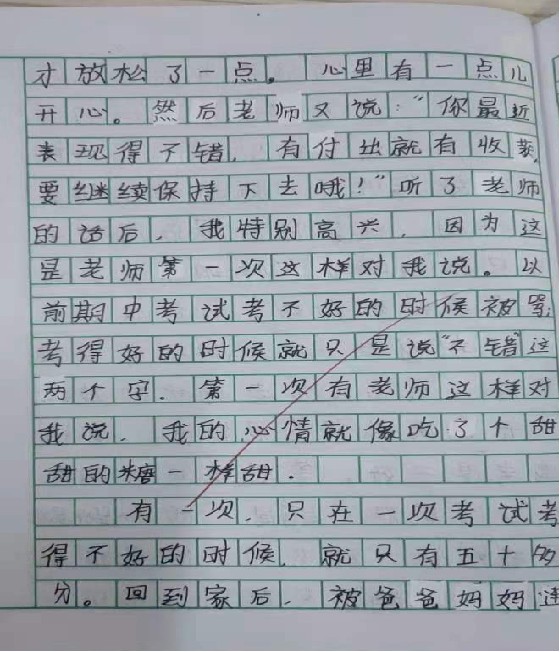 才放松了一点。心里有一点儿
开心。然后老师又说:“你最近
表现得不错,有付出就有收获,
要继续保持下去哦!”听了老师
的话后,我特别高兴,因为这
是老师第一次这样对我说。以
前期中考试考不好的时候被骂;
考得好的时候就只是说“不错”这
两个字.第一次有老师这样对
我说,我的心情就像吃了个甜
甜的糖一样甜.
有一次,只在一次考试考
得不好的时候,就只有五十多
分。回到家后,被爸爸妈妈连